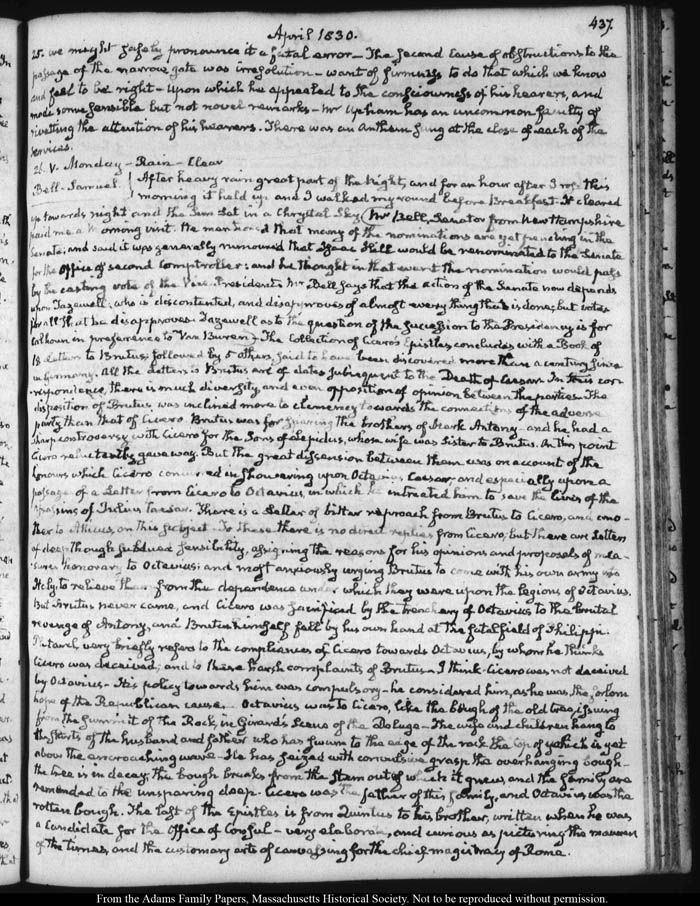 437.
April 1830.
25. we might safely pronounce it a fatal error — The second cause of obstructions to the
passage of the narrow gate was irresolution — want of firmness to do that which we know
and feel to be right — upon which he appealed to the consciousness of his hearers, and
made some sensible but not novel remarks — Mr Upham has an uncommon faculty of
rivetting the attention of his hearers. There was an Anthem sung at the close of each of the
services.
26. V. Monday — Rain — Clear
Bell. Samuel } After heavy rain great part of the Night, and for an hour after I rose this
morning it held up and I walked my round before Breakfast. It cleared
up towards night and the Sun set in a Chrystal Sky. Mr Bell, Senator from New Hampshire
paid me a morning visit. He mentioned that many of the nominations are yet pending in the
Senate; and said it was generally rumoured that Isaac Hill would be renominated to the Senate
for the Office of second Comptroller: and he thought in that event the nomination would pass
by the casting vote of the Vice-President. Mr Bell says that the action of the Senate now depends
upon Tazewell, who is discontented, and disapproves of almost every thing that is done; but votes
for all that he disapproves. Tazewell as to the question of the succession to the Presidency is for
Calhoun in preference to Van Buren. The Collection of Cicero's Epistles concludes with a Book of
18 Letters to Brutus; followed by 5 others, said to have been discovered more than a century since
in Germany. All the Letters to Brutus are of dates subsequent to the Death of Caesar. In this cor-
respondence, there is much diversity, and even opposition of opinion between the parties. The
disposition of Brutus was inclined more to clemency towards the connections of the adverse
party, than that of Cicero. Brutus was for sparing the brothers of Mark Antony — and he had a
sharp controversy with Cicero for the Sons of Lepidus, whose wife was Sister to Brutus. On this point
Cicero reluctantly gave way. But the great dissension between them was on account of the
honours which Cicero concurred in showering upon Octavius Caesar, and especially upon a
passage of a Letter from Cicero to Octavius, in which he entreated him to save the lives of the
assassins of Julius Caesar. There is a Letter of bitter reproach from Brutus to Cicero, and ano-
ther to Atticus on this subject. To these there is no direct replies from Cicero; but there are Letters
of deep though subdued sensibility, assigning the reasons for his opinions and proposals of mea-
sures honorary to Octavius: and most anxiously urging Brutus to come with his own army into
Italy to relieve them from the dependence under which they were upon the legions of Octavius.
But Brutus never came, and Cicero was sacrificed by the treachery of Octavius to the brutal
revenge of Antony, and Brutus himself fell by his own hand at the fatal field of Philippi.
Plutarch very briefly refers to the compliances of Cicero towards Octavius, by whom he thinks
Cicero was deceived; and to these harsh complaints of Brutus — I think Cicero was not deceived
by Octavius — His policy towards him was compulsory — he considered him, as he was, the forlorn
hope of the Republican cause. Octavius was to Cicero, like the bough of the old tree, issuing
from the summit of the Rock, in Girard's Scene of the Deluge. The wife and children hang to
the skirts of the husband and father who has swum to the edge of the rock the top of which is yet
above the encroaching wave — He has seized with convulsive grasp the overhanging bough —
the tree is in decay; the bough breaks from the stem out of which it grew, and the family are
remanded to the unsparing deep. Cicero was the father of this family, and Octavius was the
rotten bough. The last of the Epistles is from Quintus to his brother, written when he was
a Candidate for the Office of Consul — very elaborate, and curious as picturing the manners
of the times, and the customary arts of canvassing for the chief magistracy of Rome.
From the Adams Family Papers, Massachusetts Historical Society. Not to be reproduced without permission.